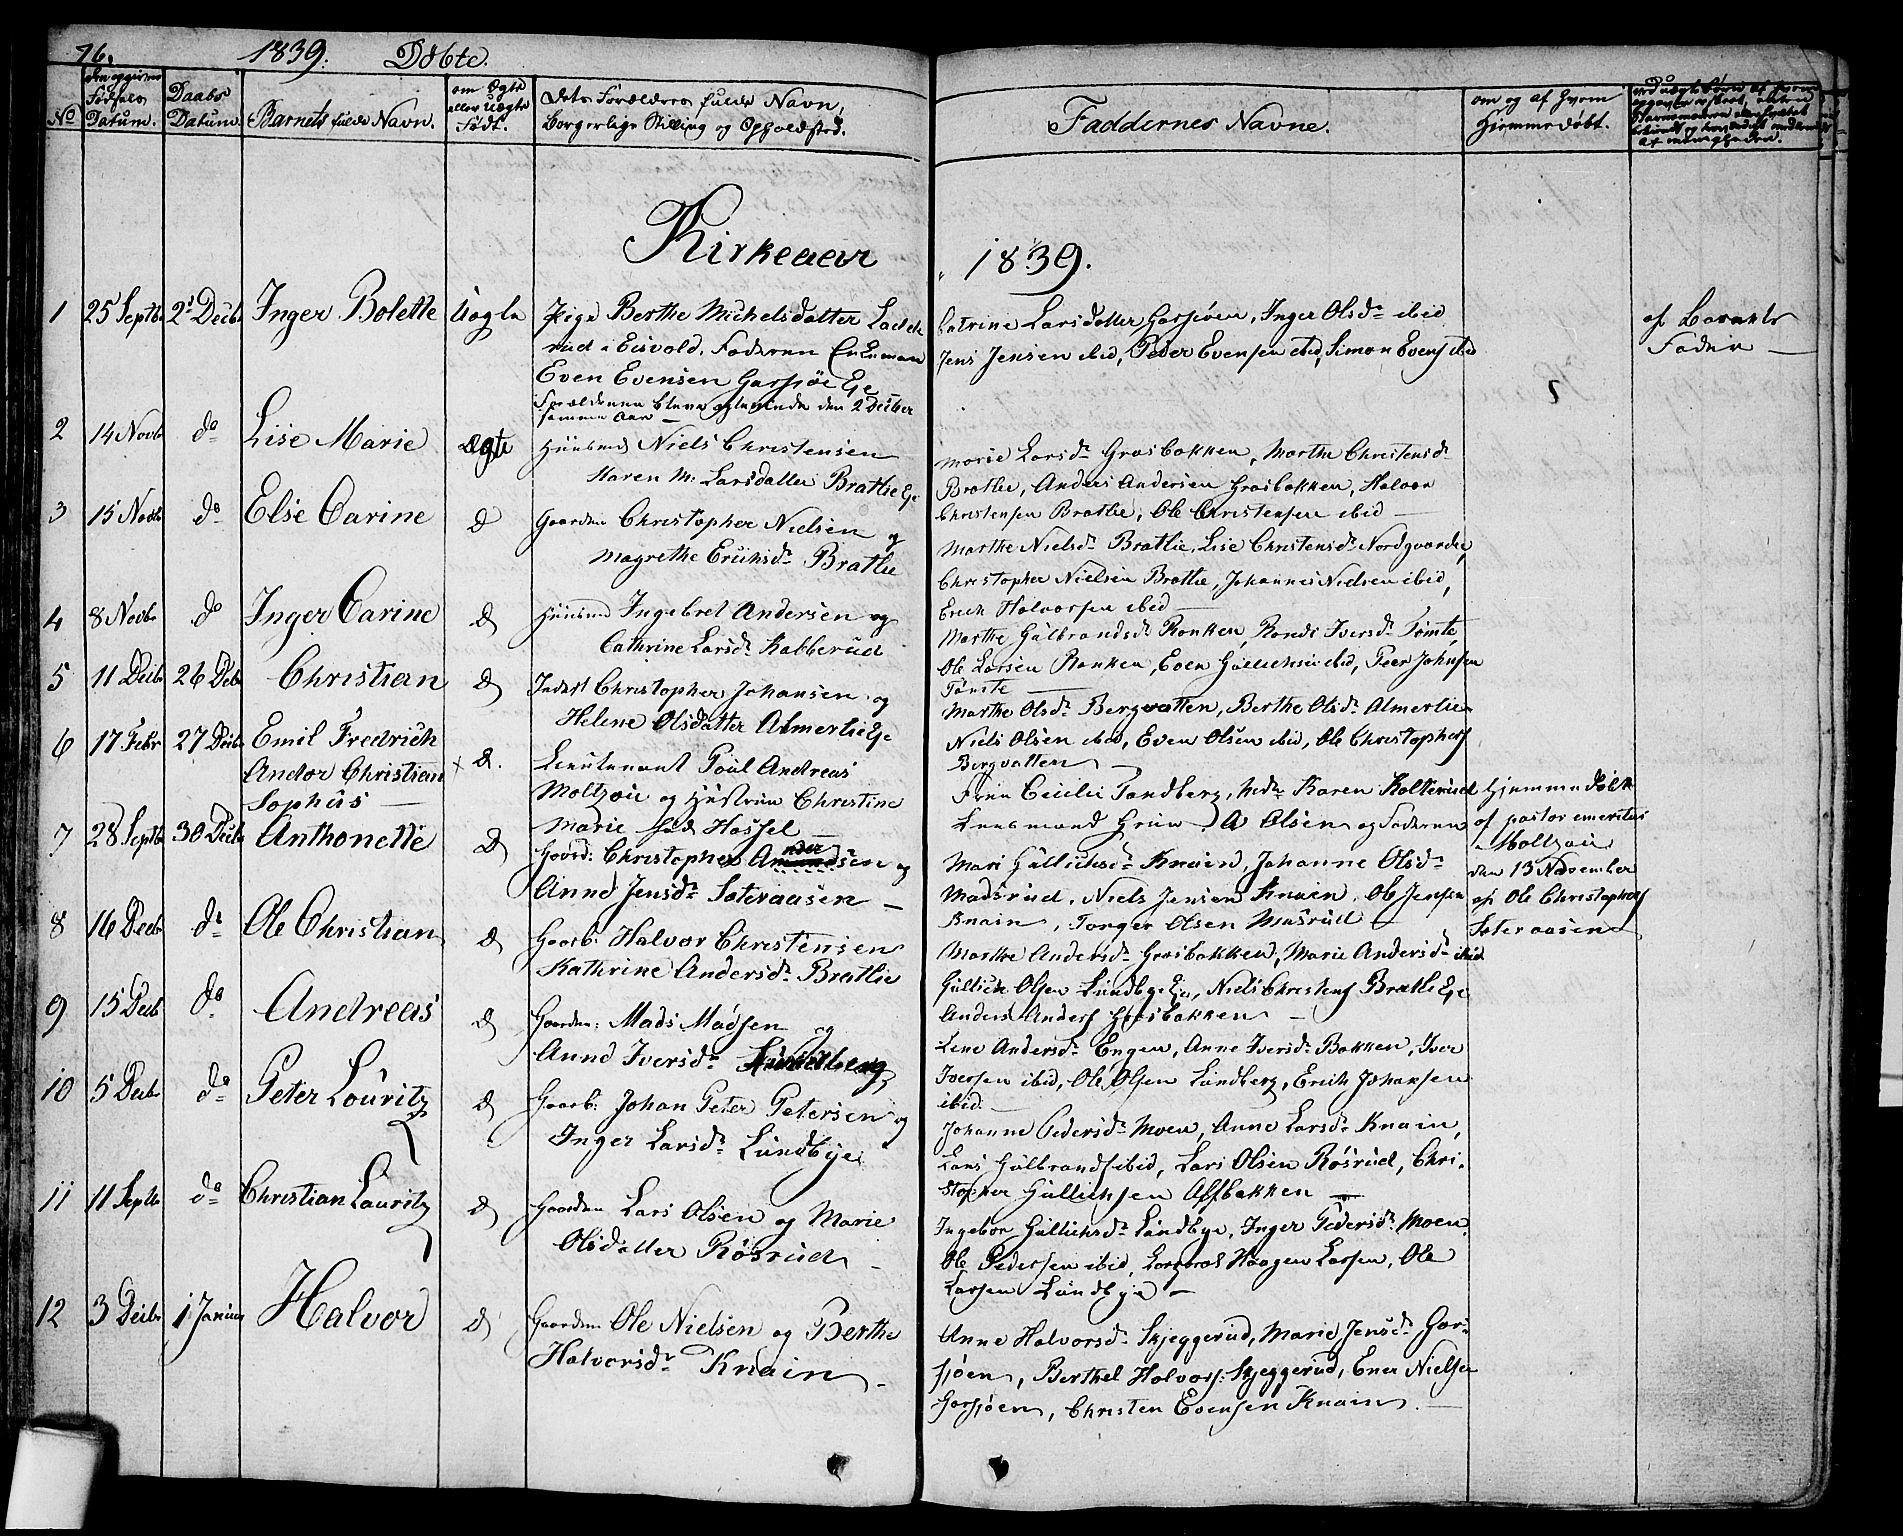 76. 1839. Døbte.
No
den opgivne Fødsels Datum.
Daabs Datum.
Barnets fulde Navn.
om Ægte eller Uægte Født.
Dets Forældres fulde Navn, Borgerlige Stilling og Opholdsted.
Faddernes Navne.
om og af hvem Hjemmedøbt.
Kirkeaar 1839.
1 25 Septbr 2d Decbr Inger Bolette Uægte
Pige Berthe Michelsdatter Ladde
rud i Eisvold. Faderen Enkemand
Even Evensen Garsjøe Eje
Forældrene bleve egteviede den 2 Decber
samme Aar —
Catrine Larsdatter Garsjøen, Inger Olsdr ibid
Jens Jensen ibid, Peder Evensen ibid, Simon Evens ibid
af Barnets
Fader —
2 14 Novbr do Lise Marie Ægte
Huusmd Niels Christensen
Karen M: Larsdatter Bratlie Eje
Marie Larsdr Græsbakken, Marthe Christensdr
Bratlie, Anders Andersen Græsbakken, Halvor
Christensen Bratlie, Ole Christensen ibid —
3 15 Novbr do Else Carine D
Gaardm Christopher Nielsen og
Magrethe Erichsdr Bratlie
Marthe Nielsdr Bratlie, Lise Christensdr Nordgaarden,
Christopher Nielsen Bratlie, Johannes Nielsen ibid,
Erich Halvorsen ibid —
4 8 Novbr do Inger Carine D
Huusmd Ingebret Andersen og
Cathrine Larsdr Kabberud
Marthe Gulbrandsdr Ronken, Rondi Iversdr Tømte,
Ole Larsen Ronken, Even Gullichsen ibid, Peer Johnsen
Tømte —
5 11 Decbr 26 Decbr Christian D
Inderst Christopher Johansen og
Helene Olsdatter Almerlie Eje
Marthe Olsdr Bergvatten, Berthe Olsdr Almerlie
Niels Olsen ibid, Even Olsen ibid, Ole Christophers
Bergvatten —
6 17 Febr 27 Decbr Emil Fredrich
Andor Christian
Sophus — × D.
Lieutenant Poul Andreas
Moltzau og Hustrue Christine
Marie fød Hassel —
Frue Cecilie Tandberg, Mdm Karen Kolterud
Lensmand Hrm A Olsen og Faderen
Hjemmedøbt
af pastor emeritus
Moltzau
7 28 Septbr 30 Decbr Anthonette D
Gaard: Christopher Andersen og
Anne Jensdr Sæteraasen —
Mari Gullichsdr Knain, Johanne Olsdr
Madsrud, Niels Jensen Knain, Ole Jensen
Knain, Torger Olsen Masrud —
den 13 November
af Ole Christophers
Sæteraasen
8 16 Decbr do Ole Christian D
Gaarb: Halvor Christensen
Kathrine Andersdr Bratlie
Marthe Andersdr Græsbakken, Marie Andersdr ibid
Gullich Olsen Lundbye Eje, Niels Christens Bratlie Eje
Anders Anders Græsbakken —
9 15 Decbr do Andreas D
Gaardm: Mads Madsen og
Anne Iversdr
Lene Andersdr Engen, Anne Iversdr Bakken, Iver
Iversen ibid, Ole Olsen Lundberg, Erich Johansen
ibid. —
10 5 Decbr do Peter Louritz D
Gaarb: Johan Peter Petersen og
Inger Larsdr Lundbye
Johanne Pedersdr Moen, Anne Larsdr Knain,
Lars Gulbrands ibid, Lars Olsen Røsrud, Chri-
stopher Gullichsen Assbakken —
11 11 Septbr do Christian Lauritz D
Gaardm Lars Olsen og Marie
Olsdatter Røsrud —
Ingebor Gullichsdr Lundbye, Inger Pedersdr Moen,
Ole Pedersen ibid, Haagen Larsen, Ole
Larsen Lundbye —
12 3 Decbr 1 Januar Halvor D
Gaardm Ole Nielsen og Berthe
Halvorsdr Knain —
Anne Halvorsdr Skjeggerud, Marie Jensdr Gar-
sjøen, Berthel Halvors: Skjeggerud, Ener Nielsen
Garsjøen, Christen Evensen Knain. —